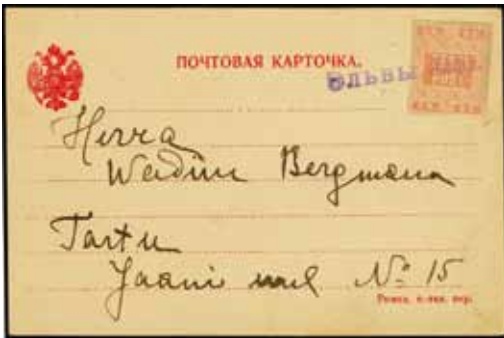 ПОЧТОВАЯ КАРТОЧКА.
ЭЛЬВЫ
Herra
Wadim Bergmann
Tartu
Jaani uul № 15